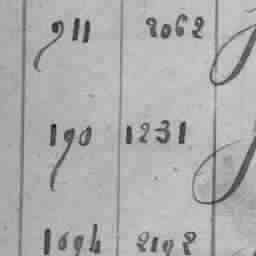 911 2062
190 1231
1694 2192